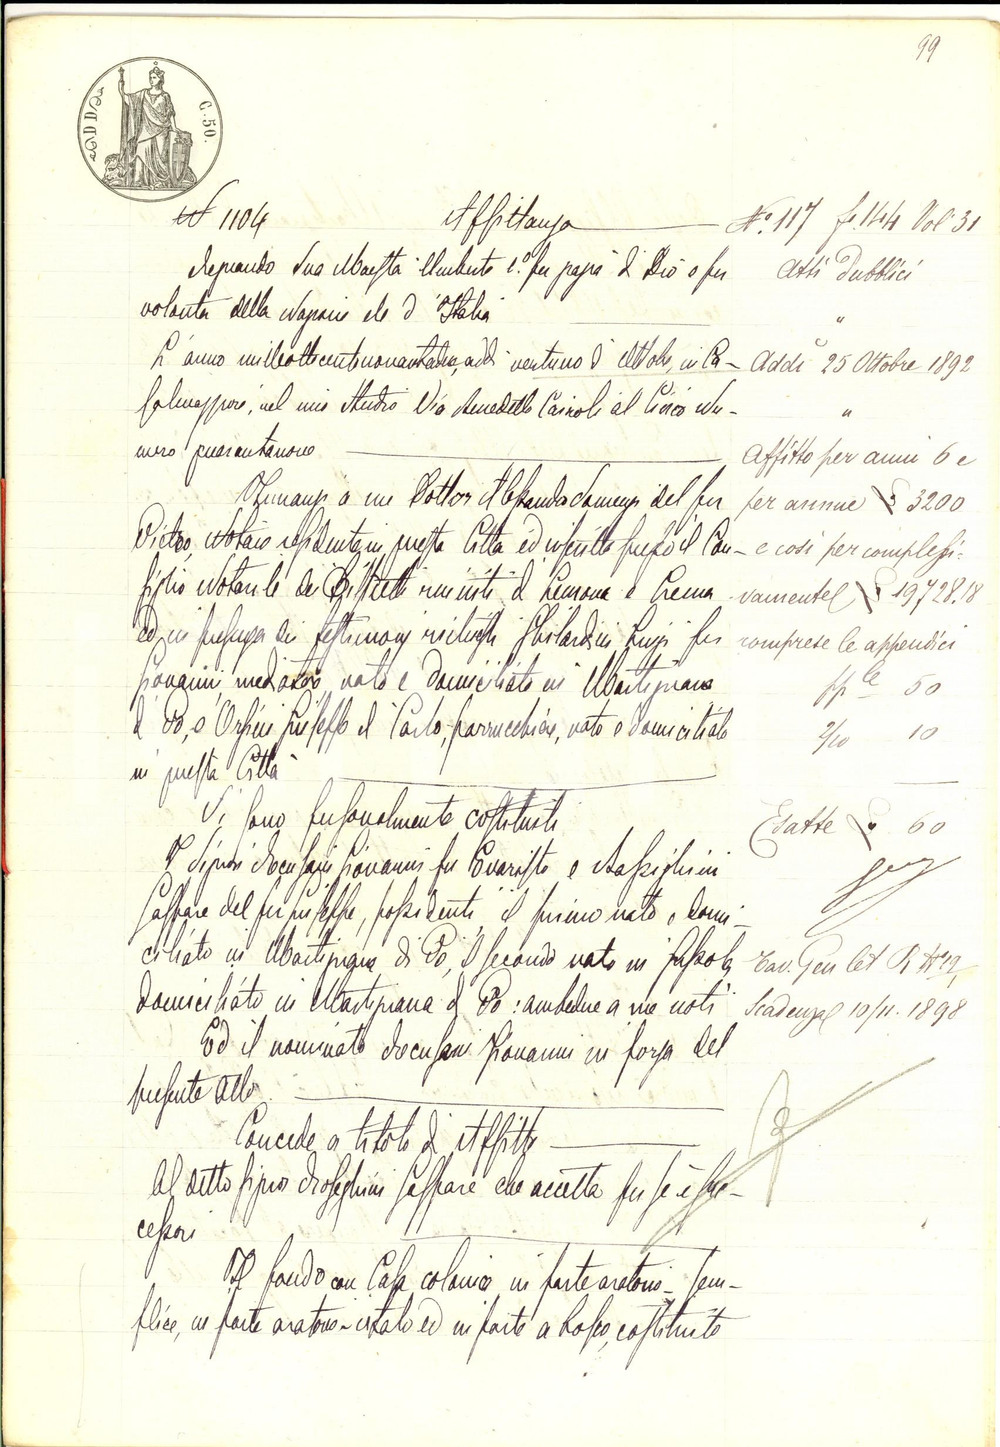 99
C. 50.
N 1104 Affittanza
Regnando Sua Maestà Umberto 1.º per grazia di Dio e per
volontà della Nazione Re d'Italia
L'anno milleottocentonovantadue, addì ventuno d'Ottobre, in Ca-
salmaggiore, nel mio Studio Via Benedetto Cairoli al Civico Nu-
mero quarantanove
Innanzi a me Dottor del fu
Pietro, Notaio residente in questa Città ed inscritto presso il Con-
siglio Notarile dei Distretti riuniti di Cremona e Crema
ed in presenza dei testimoni richiesti Ghilardini Luigi fu
Giovanni, mediatore, nato e domiciliato in Martignana
di Po, e Orsini Giuseppe di Carlo, parrucchiere, nato e domiciliato
in questa Città
Si sono personalmente costituiti
I Signori Giovanni fu Evaristo e
Gaspare del fu Giuseppe, possidenti, il primo nato e domi-
ciliato in Martignana di Po, il secondo nato in
domiciliato in Martignana di Po: ambedue a me noti
Ed il nominato Giovanni in forza del
presente Atto
Concede a titolo di Affitto
Al detto Signor Gaspare che accetta per sè e suc-
cessori
Il fondo con Casa colonica in parte aratorio sem-
plice, in parte aratorio-vitato ed in parte a bosco, costituito
Nº. 117 fo. 144 Vol 31
Atti Pubblici
"
Addì 25 Ottobre 1892
"
Affitto per anni 6 e
per annue £ 3200
e così per complessi-
vamente £ 19728.18
comprese le appendici
pple 50
2/10 10
Esatte £. 60
Tav. Gen Let R Nº 12,
Scadenza 10/11. 1898